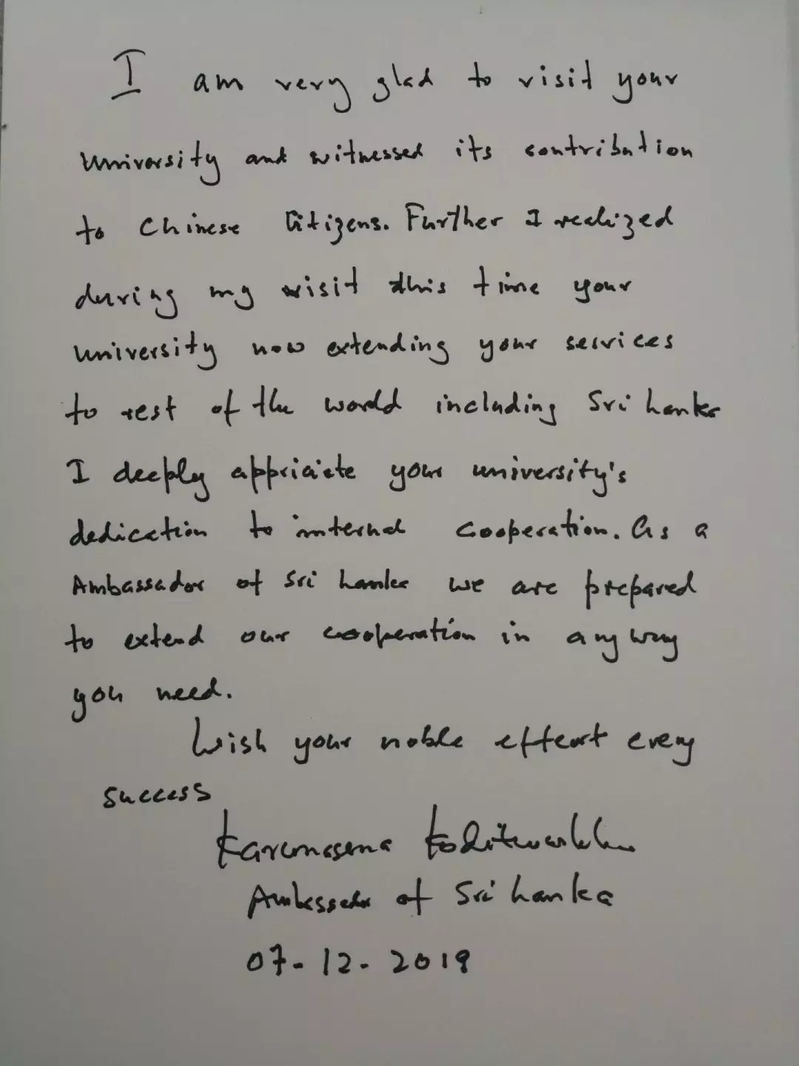 I am very glad to visit your
University and witnessed its contribution
to Chinese Citizens. Further I realized
during my visit this time your
university now extending your services
to rest of the world including Sri Lanka
I deeply appriciate your university's
dedication to internal cooperation. As a
Ambassador of Sri Lanka we are prepared
to extend our cooperation in any way
you need.
Wish your noble effort every
success
Karunasena Kodituwakku
Ambassador of Sri Lanka
07-12-2019